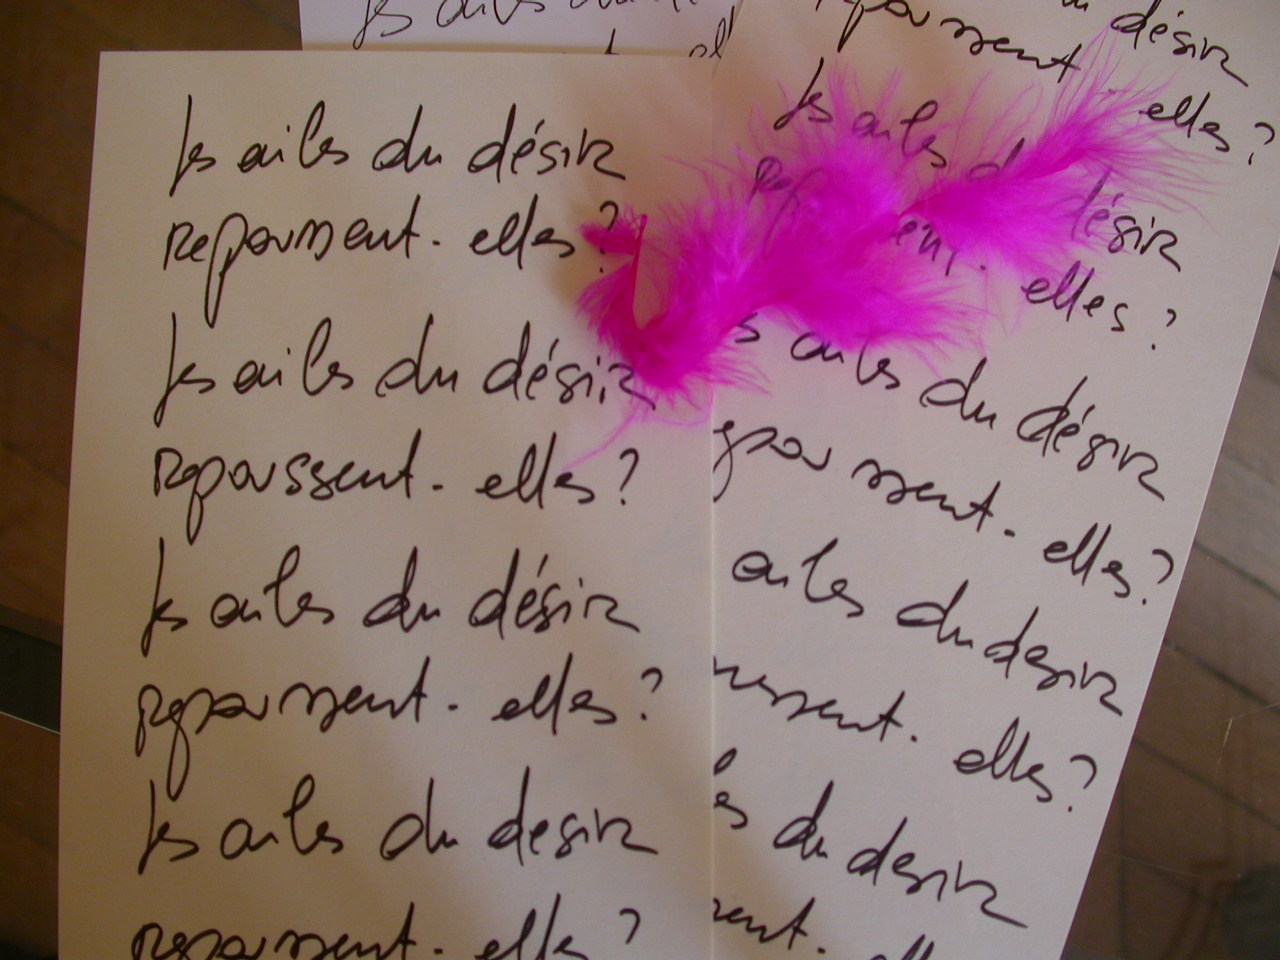 les ailes du désir
repoussent. elles?
les ailes du désir
repoussent. elles?
les ailes du désir
repoussent. elles?
les ailes du desir
repoussent. elles?
les ailes du
du désir
repoussent elles?
les ailes du désir
elles?
ailes du désir
repoussent. elles?
ailes du desir
elles?
du desir